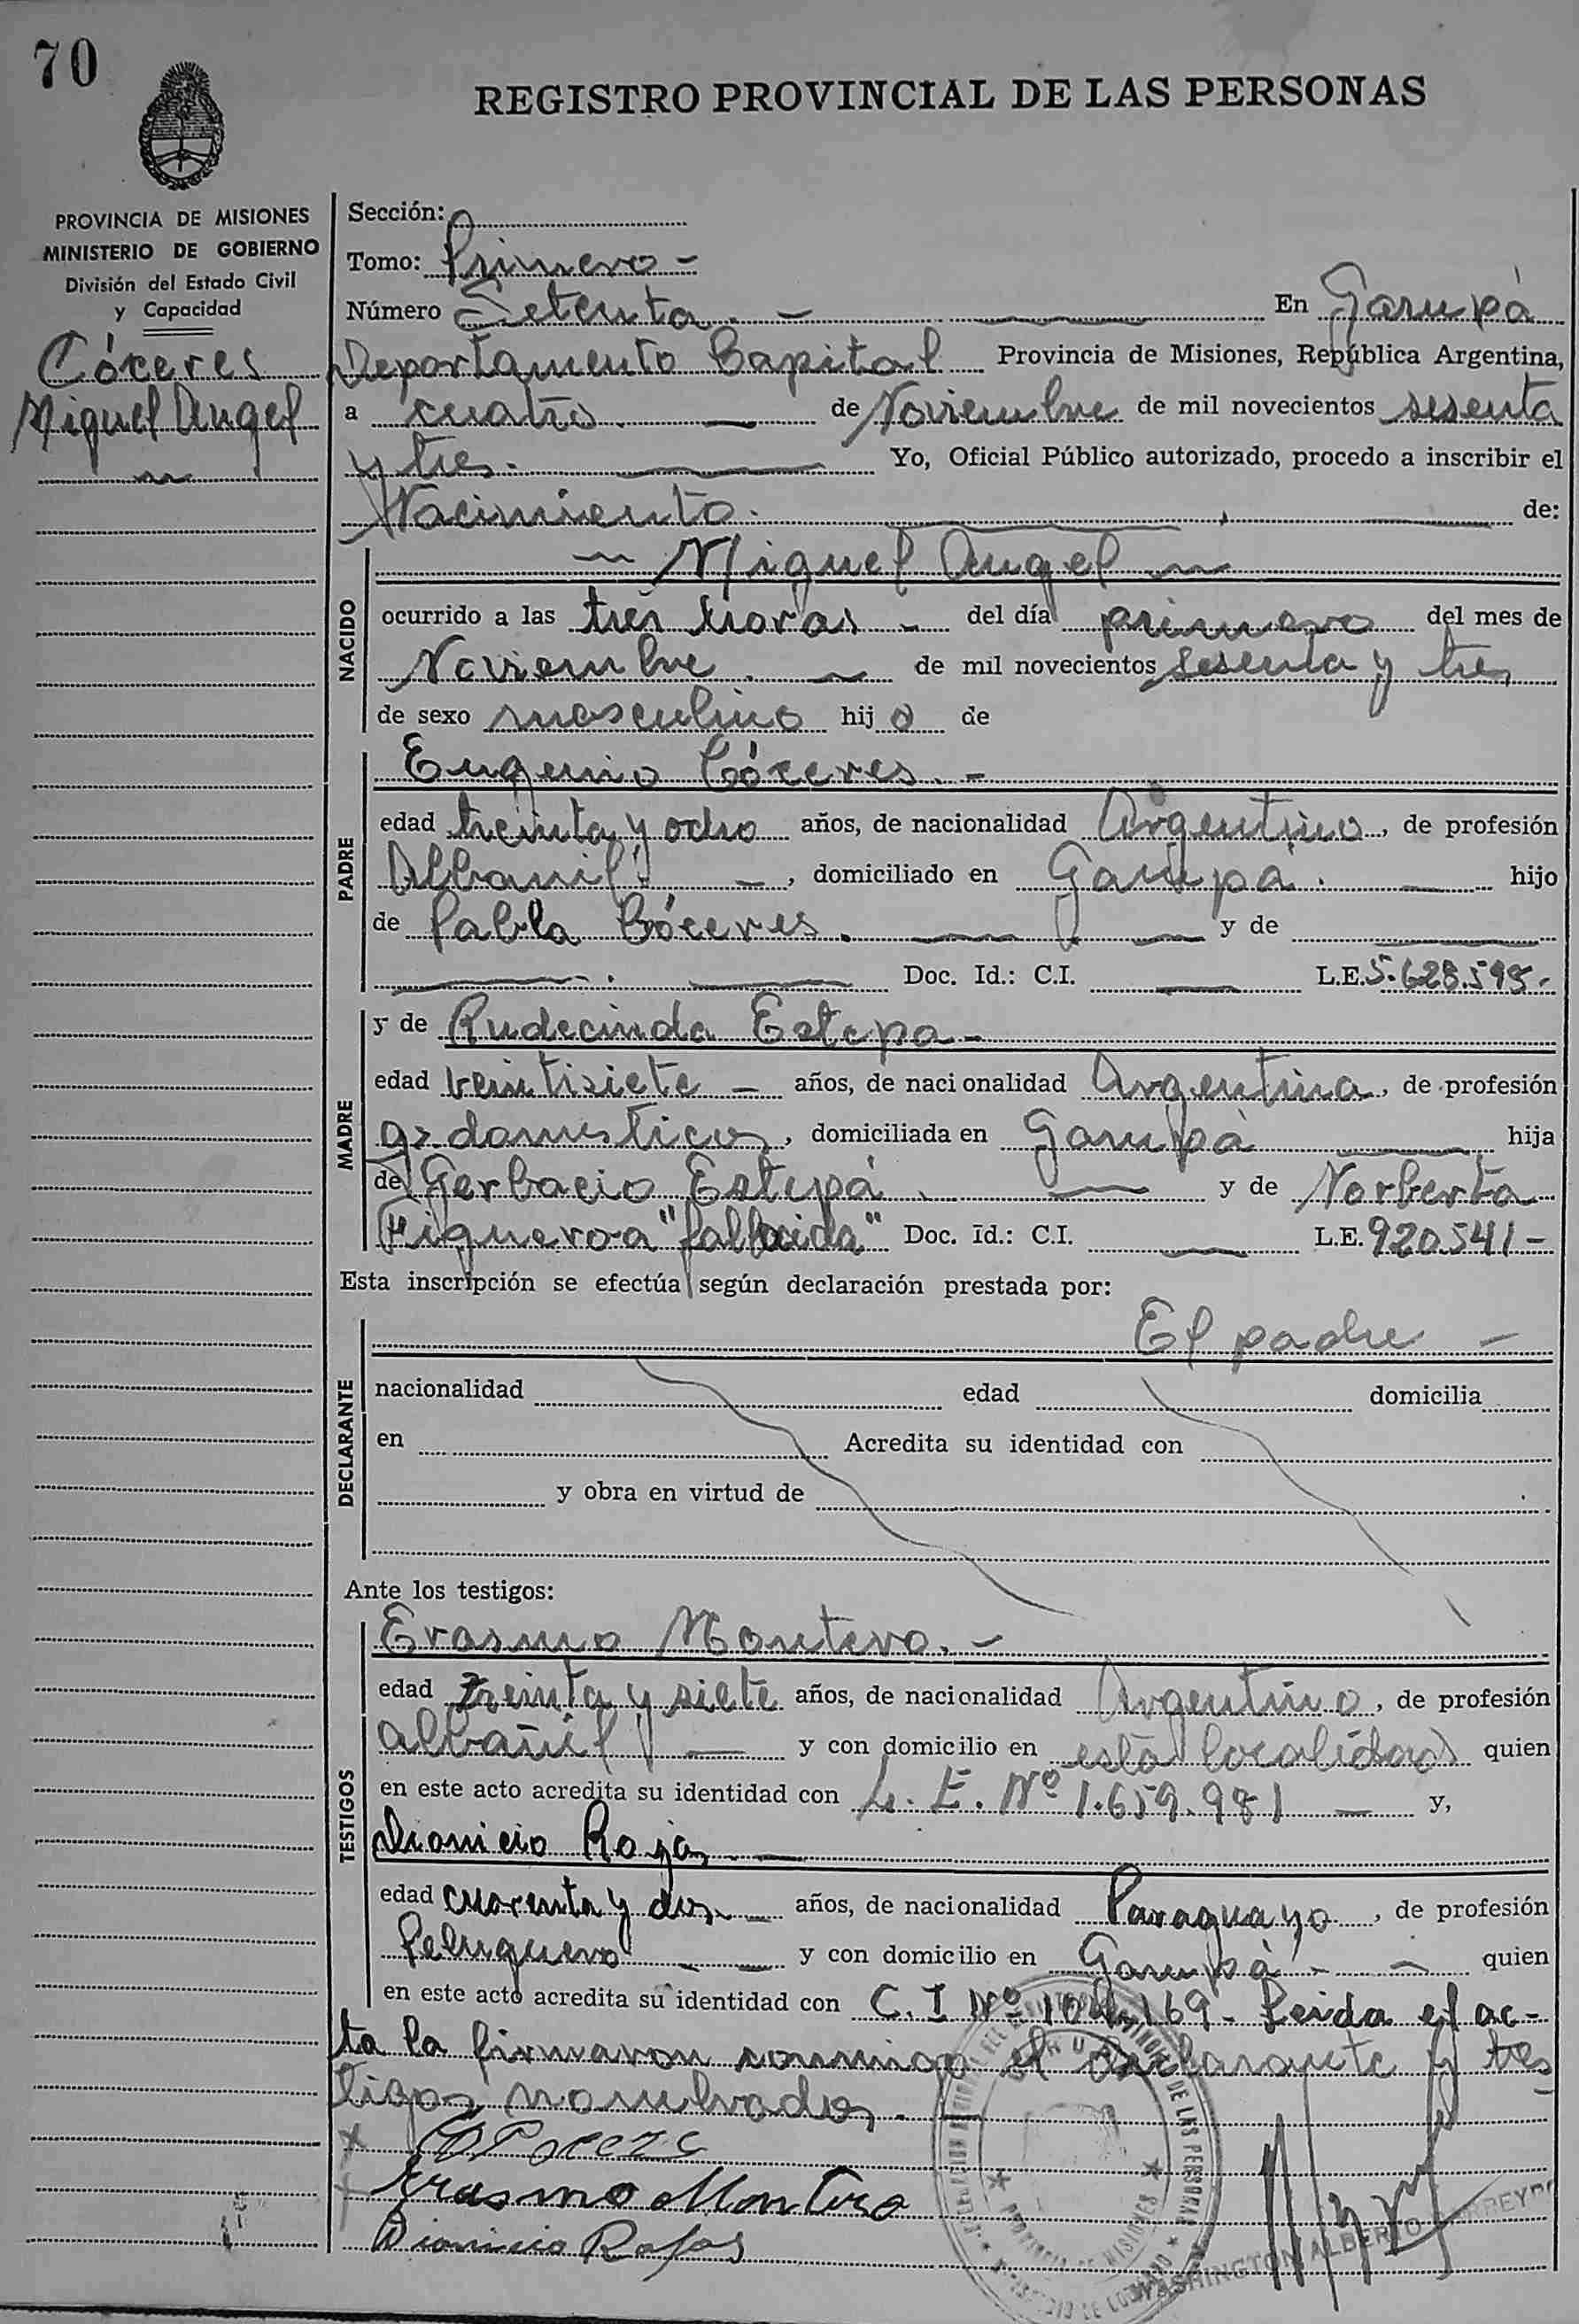 70
REGISTRO PROVINCIAL DE LAS PERSONAS
PROVINCIA DE MISIONES
MINISTERIO DE GOBIERNO
División del Estado Civil
y Capacidad
Cáceres
Miguel Angel
Sección:
Tomo: Primero -
Número Setenta. - En Garupá
Departamento Capital Provincia de Misiones, República Argentina,
a cuatro. - de Noviembre de mil novecientos sesenta
y tres. - Yo, Oficial Público autorizado, procedo a inscribir el
Nacimiento. de:
Miguel Angel
NACIDO
ocurrido a las tres horas - del día primero del mes de
Noviembre. - de mil novecientos sesenta y tres
de sexo masculino hijo de
PADRE
Eugenio Cáceres. -
edad treinta y ocho años, de nacionalidad Argentino, de profesión
Albanil - , domiciliado en Garupá. - hijo
de Pabla Cáceres. - y de
Doc. Id.: C.I. - L.E. 5.628.595.-
MADRE
y de Rudecinda Estepa -
edad veintisiete - años, de nacionalidad Argentina, de profesión
q. domesticos, domiciliada en Garupá hija
de Gerbacio Estepá. - y de Norberta
Figueroa "fallecida" Doc. Id.: C.I. - L.E. 920.541 -
Esta inscripción se efectúa según declaración prestada por:
DECLARANTE
El padre -
nacionalidad edad domicilia
en Acredita su identidad con
y obra en virtud de
Ante los testigos:
TESTIGOS
Erasmo Montero. -
edad treinta y siete años, de nacionalidad Argentino, de profesión
albañil - y con domicilio en esta localidad quien
en este acto acredita su identidad con L. E. Nº 1.659.981 - y,
Dionicio Rojas -
edad cuarenta y dos - años, de nacionalidad Paraguayo, de profesión
Peluquero - y con domicilio en Garupá - quien
en este acto acredita su identidad con C. I Nº 104.169 - Leida el ac-
ta la firmaron conmigo el declarante y tes
tigos nombrados. -
Erasmo Montero
Dionicio Rojas
WASHINGTON ALBERTO